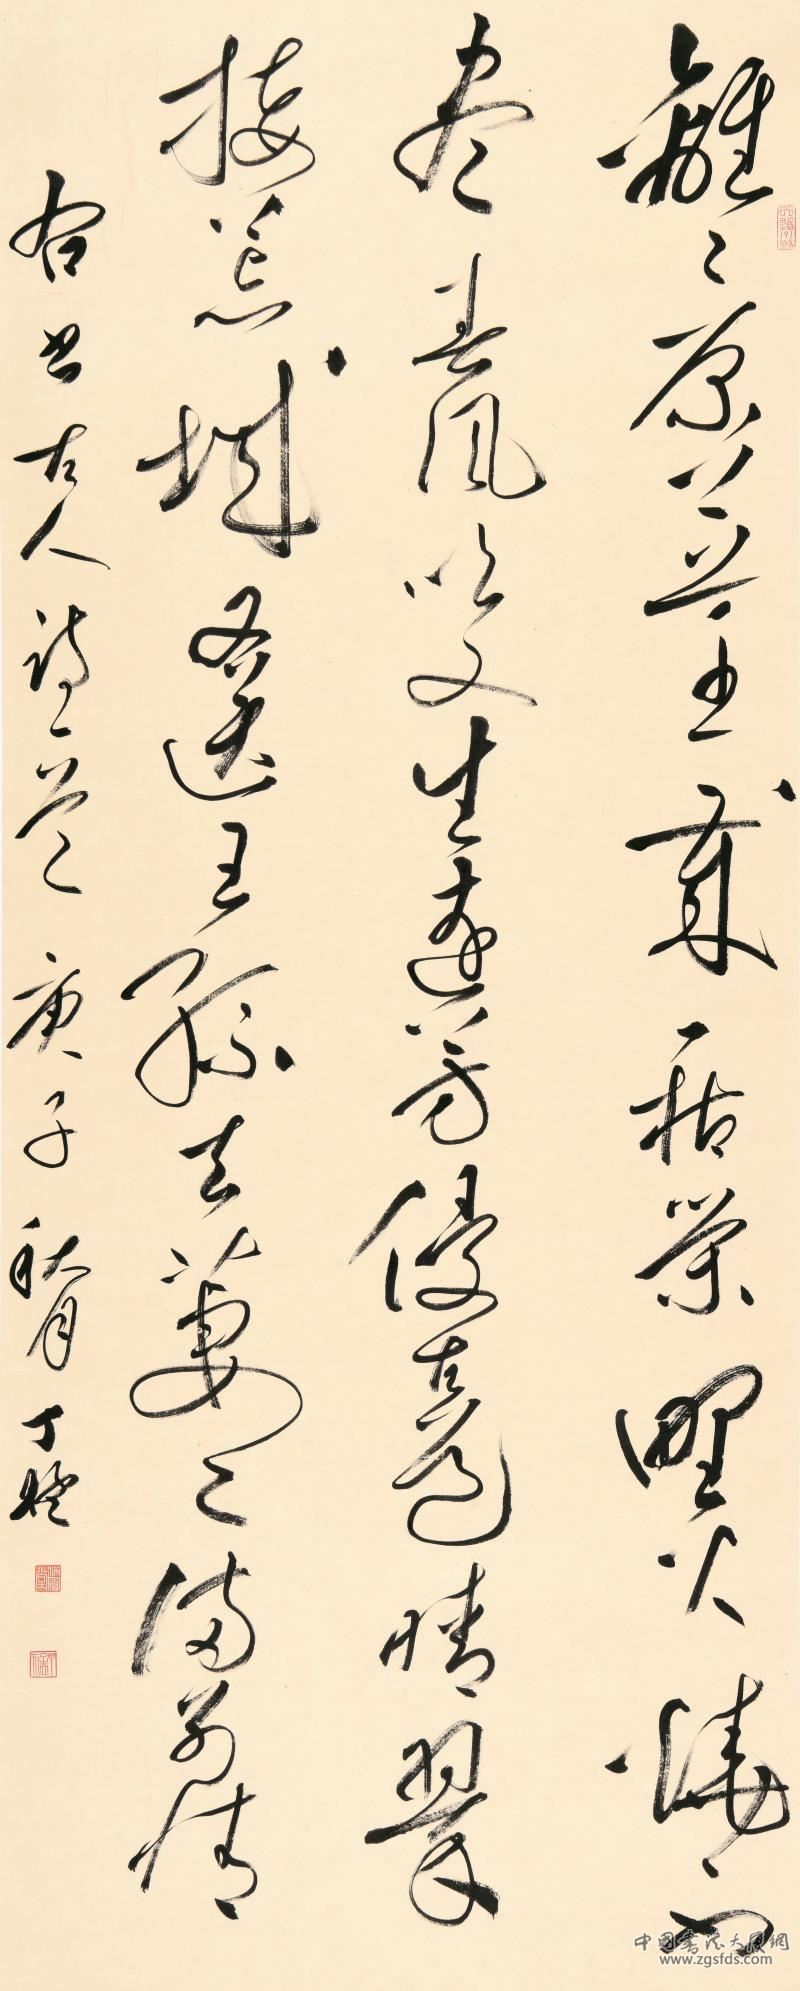 離〻原草上歲一枯榮野火燒不
盡春風吹又生遠芳侵古道晴翠
接荒城又送王孫去萋〻滿別情
右書古人詩一首庚子秋月丁
中国书法大展網
www.zgsfds.com